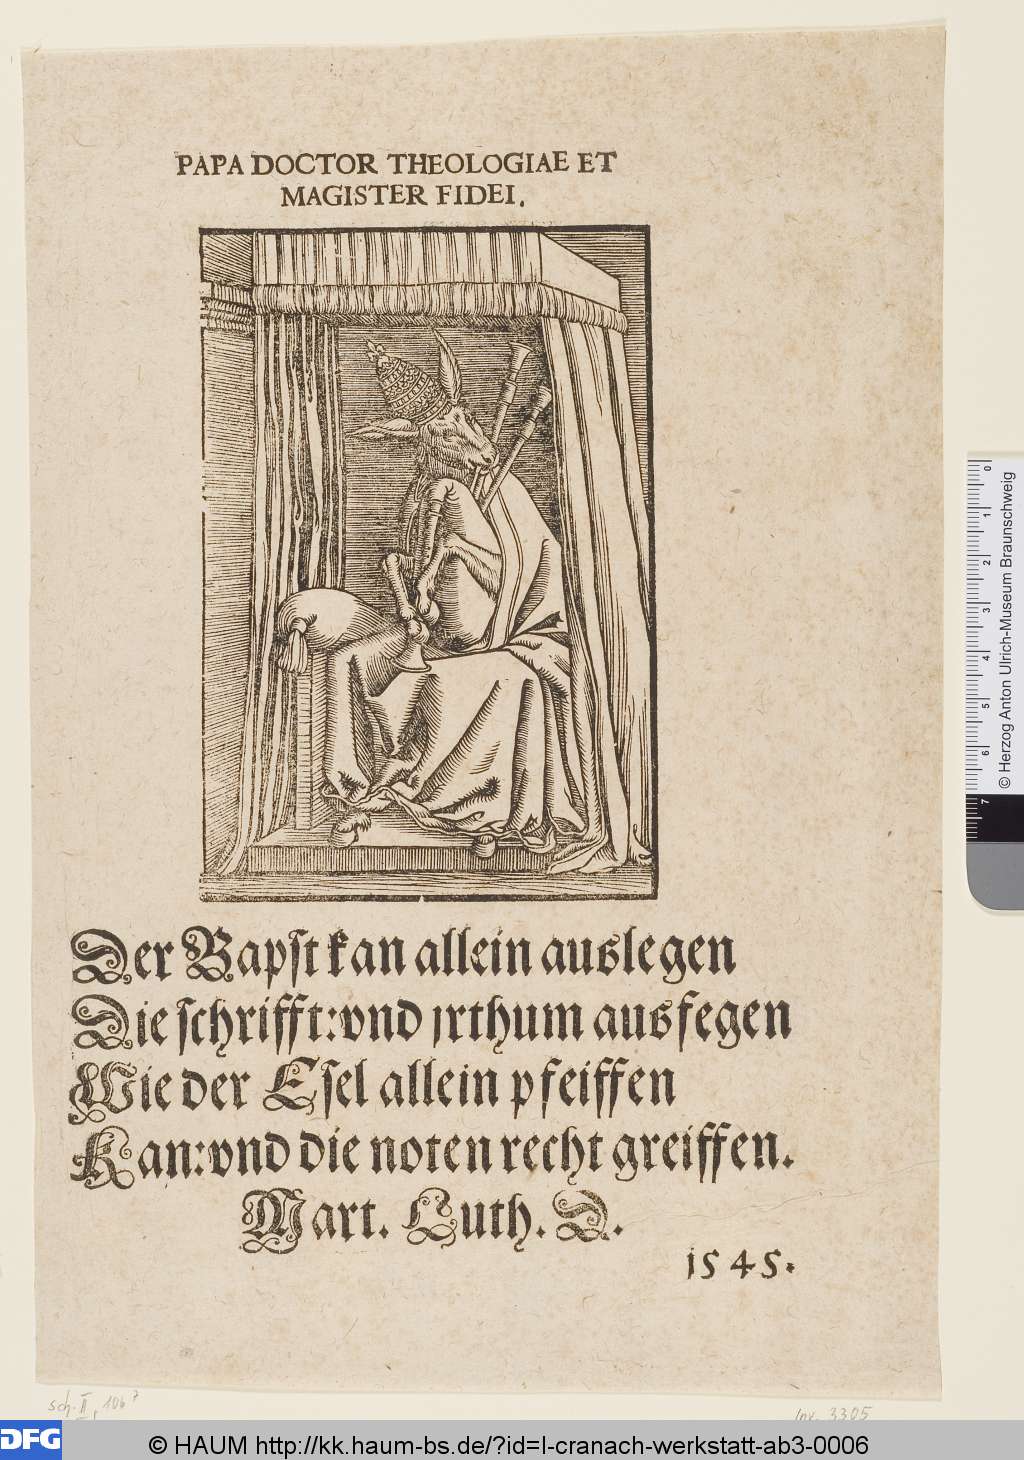 PAPA DOCTOR THEOLOGIAE ET
MAGISTER FIDEI.
Der Bapſt kan allein auslegen
Die ſchrifft: vnd jrthum ausfegen
Wie der Eſel allein pfeiffen
Kan: vnd die noten recht greiffen.
Mart. Luth. D.
1545.
sch. II, 106 7
Inv. 3305
0 1 2 3 4 5 6 7
© Herzog Anton Ulrich-Museum Braunschweig
DFG
© HAUM http://kk.haum-bs.de/?id=l-cranach-werkstatt-ab3-0006